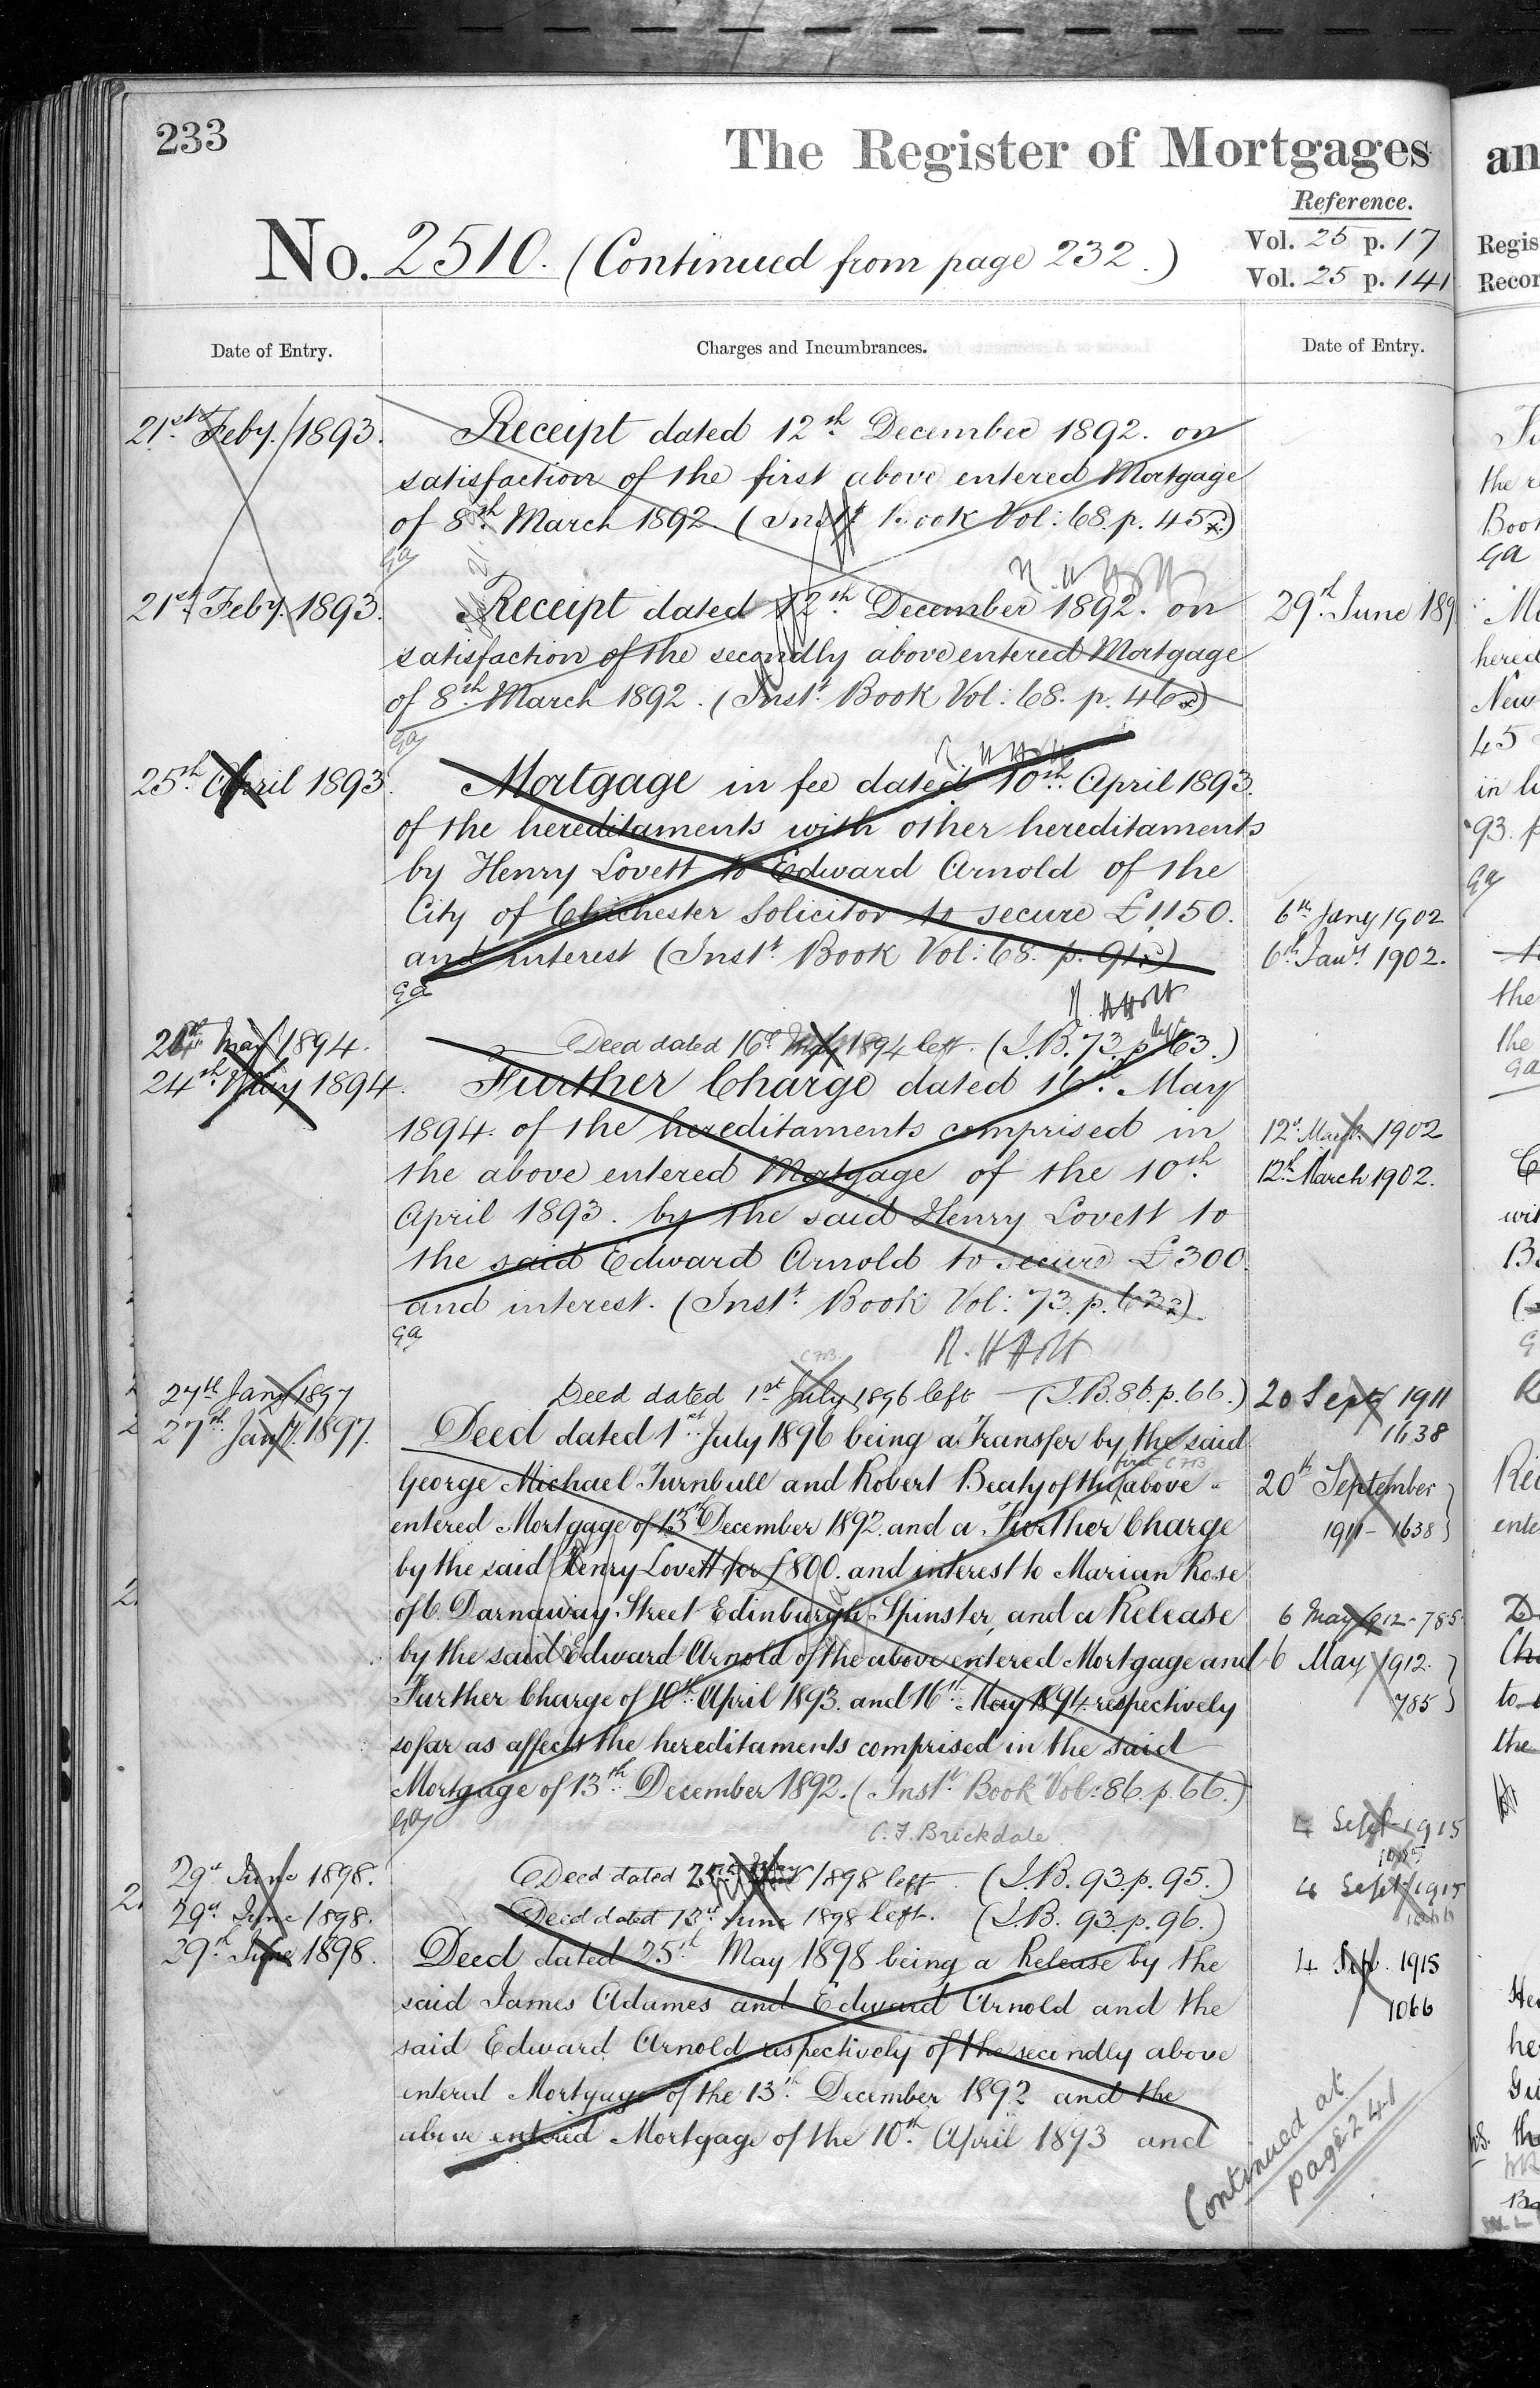 233
The Register of Mortgages
Reference.
No. 2510. (Continued from page 232.)
Vol. 25 p. 17
Vol. 25 p. 141
Date of Entry.
Charges and Incumbrances.
Date of Entry.
21st Feby. 1893. Receipt dated 12th December 1892. on
satisfaction of the first above entered Mortgage
of 8th March 1892 (Inst. Book Vol: 68. p. 45)
GA
21st Feby. 1893. Receipt dated 12th December 1892. on
satisfaction of the secondly above entered Mortgage
of 8th March 1892. (Inst. Book Vol: 68. p. 46)
GA
25th April 1893. Mortgage in fee dated 10th April 1893.
of the hereditaments with other hereditaments
by Henry Lovett to Edward Arnold of the
City of Chichester Solicitor to secure £1150.
and interest (Inst. Book Vol: 68. p. 91)
GA
May 1894. Deed dated 16th 1894 left. (I.B. 73. p. 63.)
24th May 1894. Further Charge dated 16th May
1894. of the hereditaments comprised in
the above entered Mortgage of the 10th
April 1893. by the said Henry Lovett to
the said Edward Arnold to secure £300
and interest. (Inst. Book Vol: 73. p. 63)
GA
27th Jany 1897 Deed dated 1st July 1896 left (I.B. 86. p. 66.)
27th Jany. 1897. Deed dated 1st July 1896 being a Transfer by the said
George Michael Turnbull and Robert Beaty of the first CFB above
entered Mortgage of 13th December 1892. and a Further Charge
by the said Henry Lovett for £800. and interest to Marian Rose
of 6. Darnaway Street Edinburgh Spinster, and a Release
by the said Edward Arnold of the above entered Mortgage and
Further Charge of 10th April 1893. and 16th May 1894 respectively
so far as affects the hereditaments comprised in the said
Mortgage of 13th December 1892. (Inst. Book Vol: 86. p. 66.)
GA
C. F. Brickdale
29th June 1898. Deed dated 1898 left (I.B. 93. p. 95.)
29th June 1898. Deed dated 13th June 1898 left. (I.B. 93. p. 96.)
29th June 1898. Deed dated 25th May 1898 being a Release by the
said James Adames and Edward Arnold and the
said Edward Arnold respectively of the secondly above
entered Mortgage of the 13th December 1892 and the
above entered Mortgage of the 10th April 1893 and
29th June 189
6th Jany 1902
6th Jany. 1902.
12th March 1902
12th March 1902.
20 Sept 1911
1638
20th September
1911 - 1638
6 May 1912 - 785
6 May 1912.
785
4 Sept 1915
4 Sept 1915
1066
4 Sept. 1915
1066
Continued at
page 241
an
Regis
Recor
the
Boo
GA
hered
New
45
in
93.
the
the
GA
wi
ente
to
the